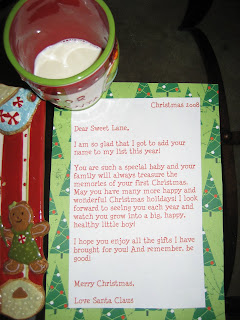 Christmas 2008
Dear Sweet Lane,
I am so glad that I got to add your
name to my list this year!
You are such a special baby and your
family will always treasure the
memories of your first Christmas.
May you have many more happy and
wonderful Christmas holidays! I look
forward to seeing you each year and
watch you grow into a big, happy,
healthy little boy!
I hope you enjoy all the gifts I have
brought for you! And remember, be
good!
Merry Christmas,
Love Santa Claus